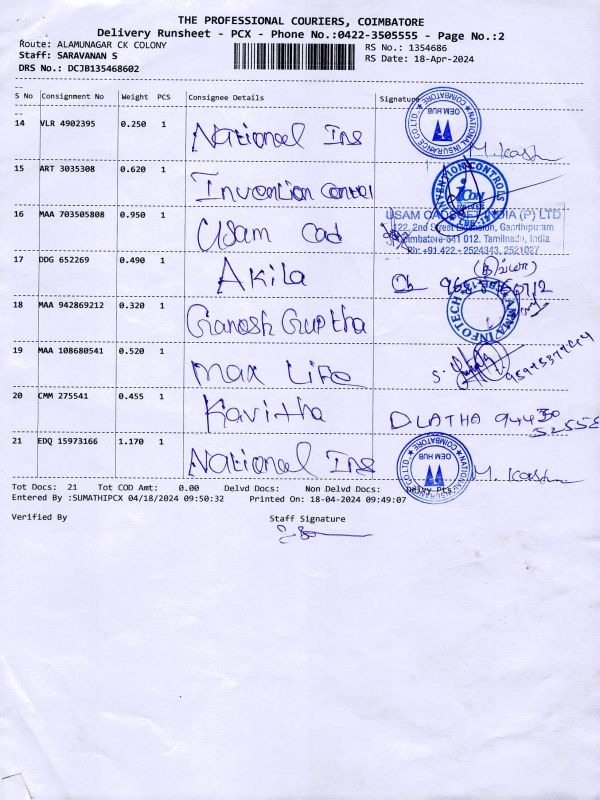 THE PROFESSIONAL COURIERS, COIMBATORE
Delivery Runsheet - PCX - Phone No.:0422-3505555 - Page No.:2
Route: ALAMUNAGAR CK COLONY
RS No.: 1354686
Staff: SARAVANAN S
RS Date: 18-Apr-2024
DRS No.: DCJB135468602
S No Consignment No Weight PCS Consignee Details Signature
14 VLR 4902395 0.250 1 National Ins
NATIONAL INSURANCE CO LTD. COIMBATORE OEM HUB
15 ART 3035308 0.620 1 Invention Control
INVENTION CONTROLS iCon
16 MAA 703505808 0.950 1 Usam Cad
122, 2nd Street Extension, Gandhipuram
Coimbatore-641 012. Tamilnadu, India
Ph: +91 422 - 2524343, 2521027
17 DDG 652269 0.490 1 Akila
18 MAA 942869212 0.320 1 Ganesh Guptha
AMMA INFOTECH
19 MAA 108680541 0.520 1 Max Life
20 CMM 275541 0.455 1 Kavitha DLATHA
21 EDQ 15973166 1.170 1 National Ins
NATIONAL INSURANCE CO LTD. COIMBATORE OEM HUB
Tot Docs: 21 Tot COD Amt: 0.00 Delvd Docs: Non Delvd Docs:
Entered By :SUMATHIPCX 04/18/2024 09:50:32 Printed On: 18-04-2024 09:49:07
Verified By Staff Signature